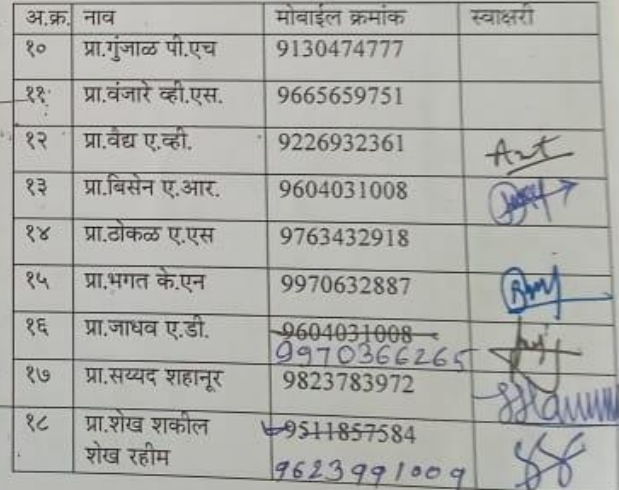 अ.क्र. नाव मोबाईल क्रमांक स्वाक्षरी
१० प्रा.गुंजाळ पी.एच 9130474777
११ प्रा.वंजारे व्ही.एस. 9665659751
१२ प्रा.वैद्य ए.व्ही. 9226932361
१३ प्रा.बिसेन ए.आर. 9604031008
१४ प्रा.ठोकळ ए.एस 9763432918
१५ प्रा.भगत के.एन 9970632887
१६ प्रा.जाधव ए.डी. 9604031008
9970366265
१७ प्रा.सय्यद शहानूर 9823783972
१८ प्रा.शेख शकील 9511857584
शेख रहीम 9623991009